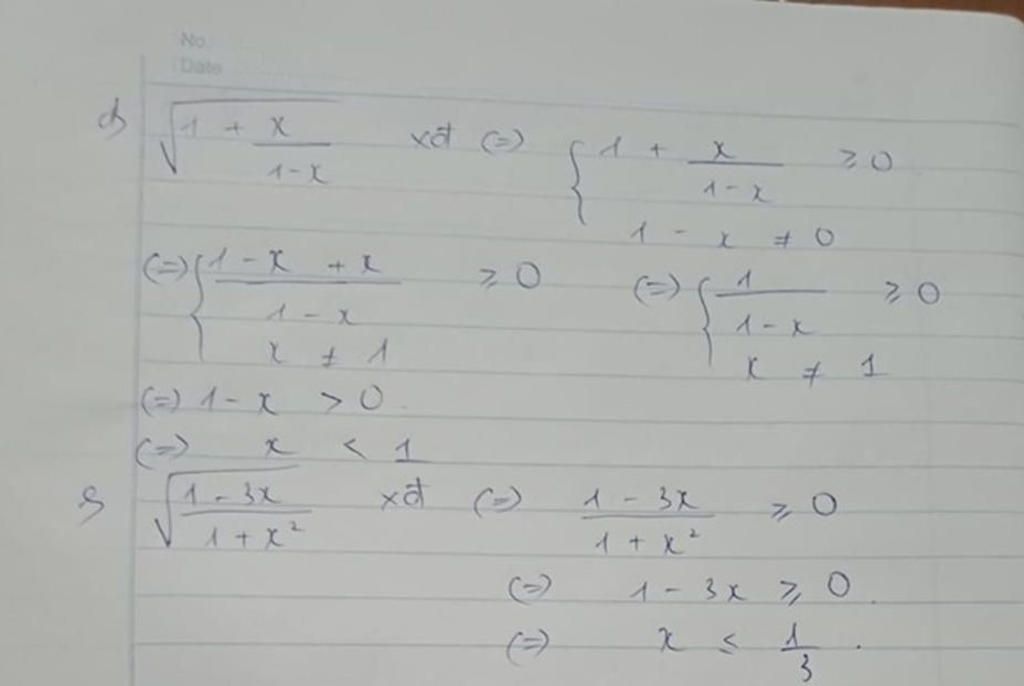 No.
Date
d) √(1 + x/(1-x)) xđ (=) { 1 + x/(1-x) ≥ 0
1 - x ≠ 0
(=) { (1-x+x)/(1-x) ≥ 0 (=) { 1/(1-x) ≥ 0
x ≠ 1 x ≠ 1
(=) 1-x > 0.
(=) x < 1
√((1-3x)/(1+x²)) xđ (=) (1-3x)/(1+x²) ≥ 0
(=) 1-3x ≥ 0.
(=) x ≤ 1/3.